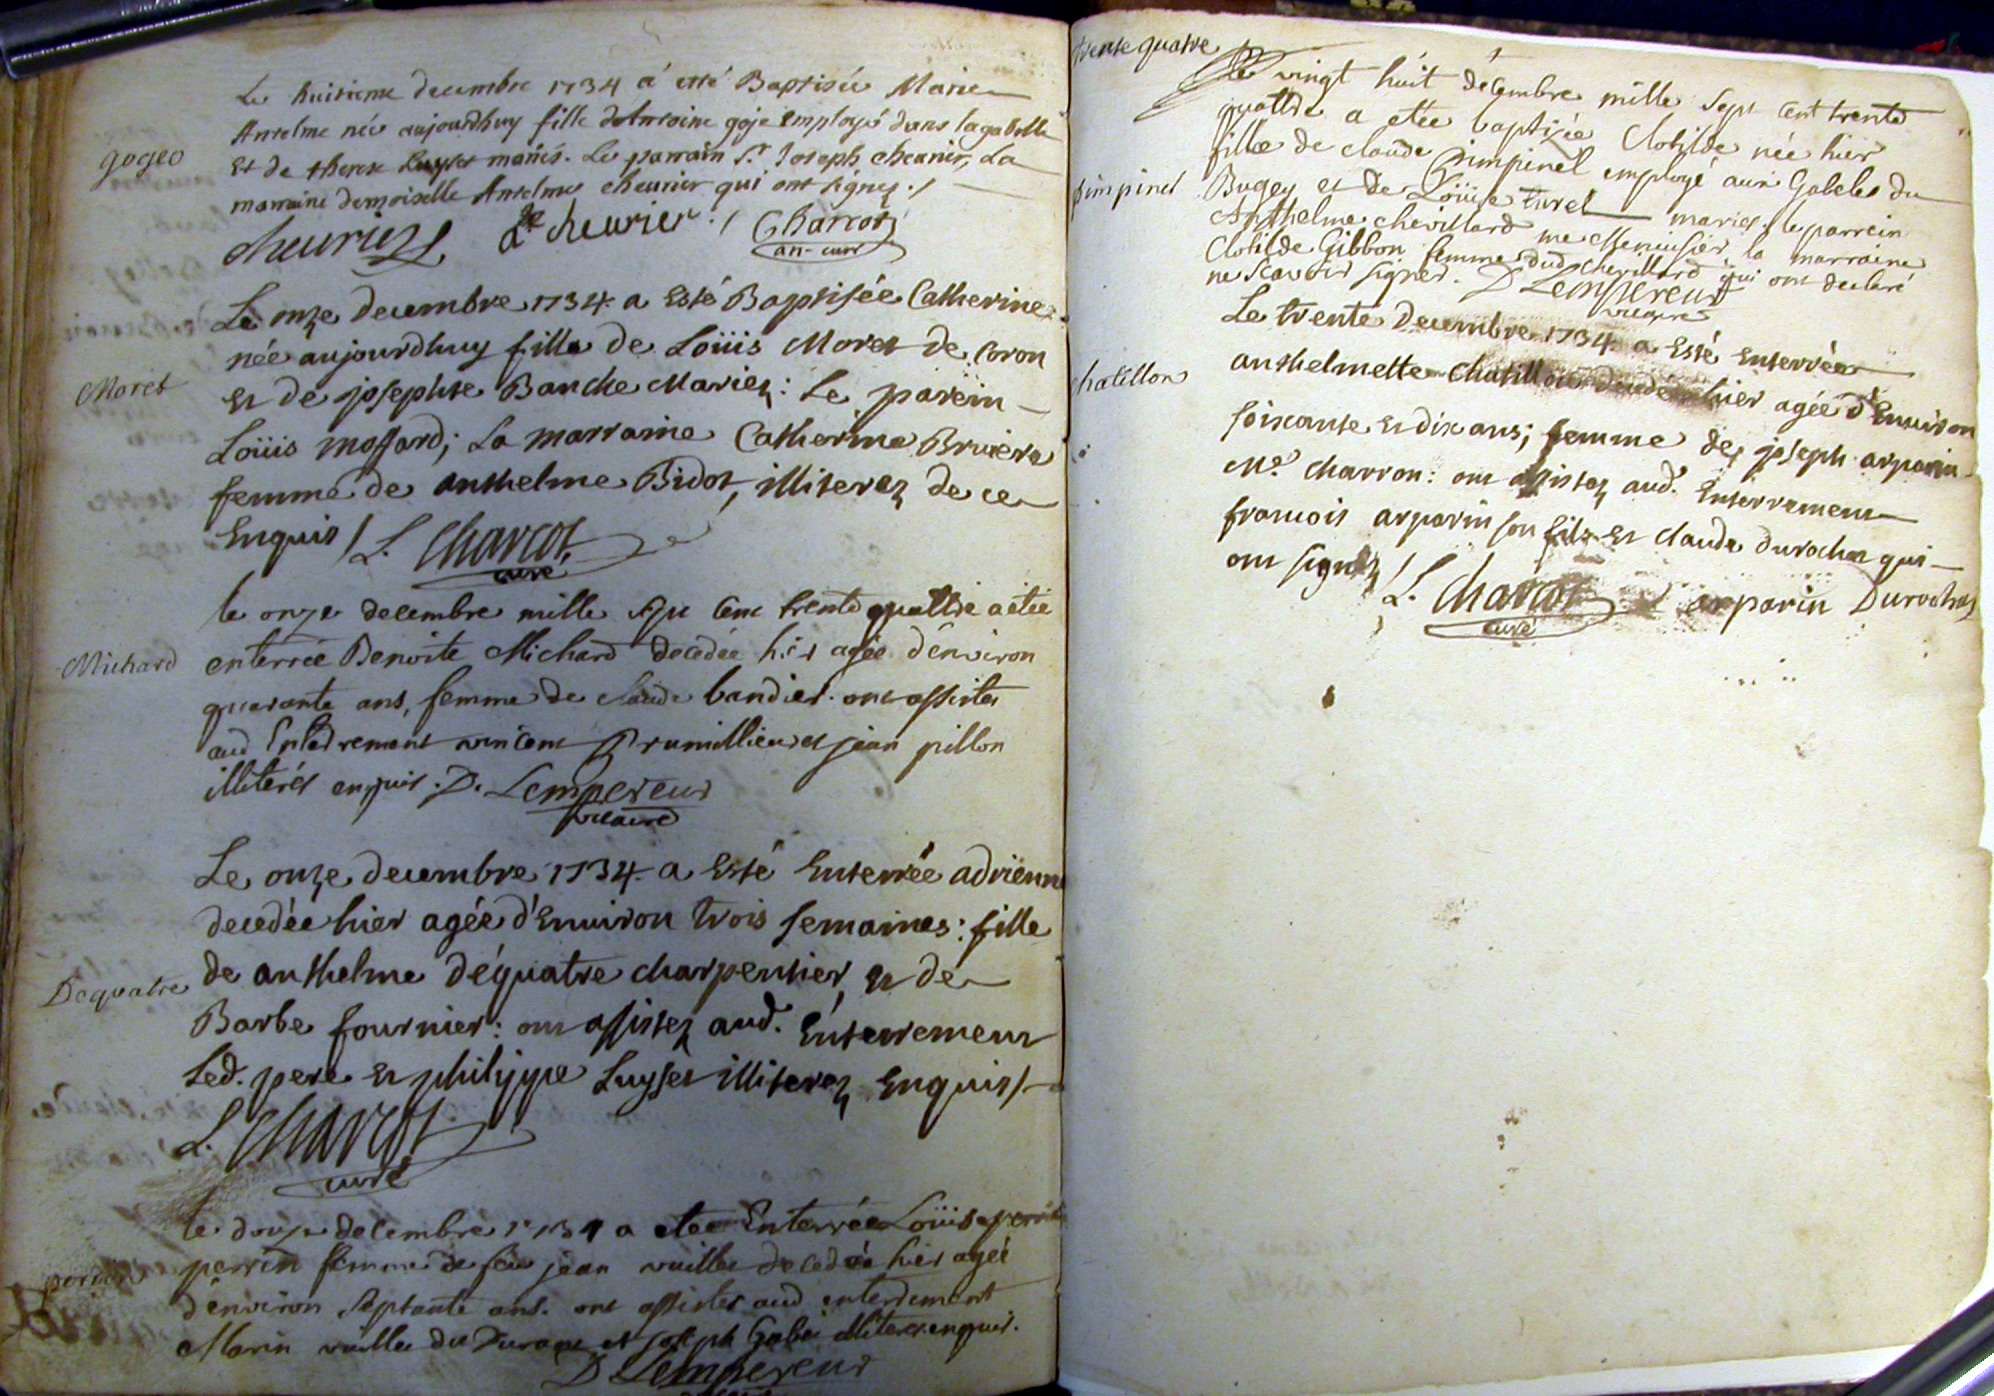 Le huitieme decembre 1734 a esté Baptisée Marie
Anselme née aujourdhuy fille dAntoine goje Employé dans la gabelle
gogeo
Et de therese Luyset mariés. Le parrain Sr. Joseph cheurier, La
marraine demoiselle Anselme cheurier qui ont signez./
cheurier A cheurier./ Charcot
an-curé
Le onze decembre 1734. a Esté Baptisée Catherine
née aujourdhuy fille de Loüis Moret de Coron
Moret
Et de josephte Banche Mariez: Le parein
Loüis mossard; La marraine Catherine Bruiere
femme de anthelme Bidot, illiterez de ce
Enquis/ L. Charcot
curé
le onze decembre mille sept cent trente quattre a etée
Michard
enterrée Benoite Michard decedée hier agée d'environ
quarante ans, femme de claude bandier. ont assistes
aud Enterrement vincent Prumillieu et jean pillon
illiterés enquis. D. Lempereur
vicaire
Le onze decembre 1734. a Esté Enterrée adrienne
decedée hier agée d'Environ trois semaines: fille
Dequatre
de anthelme déquatre charpentier, Et de
Barbe fournier: ont assistez aud. Enterrement
Led. pere Et philippe Luyset illiterez Enquis/
L. Charcot
curé
le douze decembre 1734 a etee Enterrée Loüise
perrin
perrin femme de feu jean vuillet decedée hier agée
d'environ septante ans. ont assistes aud enterrement
Marin vuillet du et joseph Gabet illiteres enquis.
D Lempereur
trente quatre
Le vingt huit decembre mille sept cent trente
quattre a etee baptisée Clotilde née hier
fille de claude Pimpinel employé aux Gabeles du
pimpinel
Bugey et de Loüise turel mariés, le parrein
Anthelme chevillard me menuisier la marraine
Clotilde Gibbon femme dud chevillard qui ont declaré
ne scavoir signer. D Lempereur
vicaire
Le trente Decembre 1734. a Esté Enterrée
chatillon
anthelmette Chatillon decedée hier agée d'Environ
soixante Et dix ans; femme de joseph arparin
Me. charron: ont assistez aud. Enterrement
francois arparin son fils Et claude durochat qui
ont signez/
L. Charcot arparin Durochat
curé